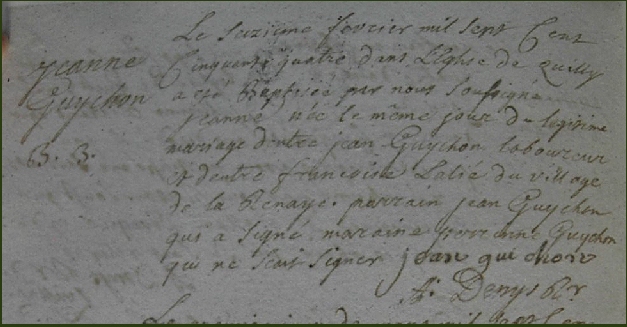 jeanne
Guychon
B. B.
Le seizieme fevrier mil sept Cent
Cinquante quatre dans L'Eglise de quilly
a eté Baptisée par nous Soussigné
jeanne née le même jour du legitime
mariage d'entre jean Guychon laboureur
et d'entre francoise Lalié du village
de la Renaye. parrain jean Guychon
qui a signé maraine perrinne Guychon
qui ne Scait Signer jean qui chon
Denys